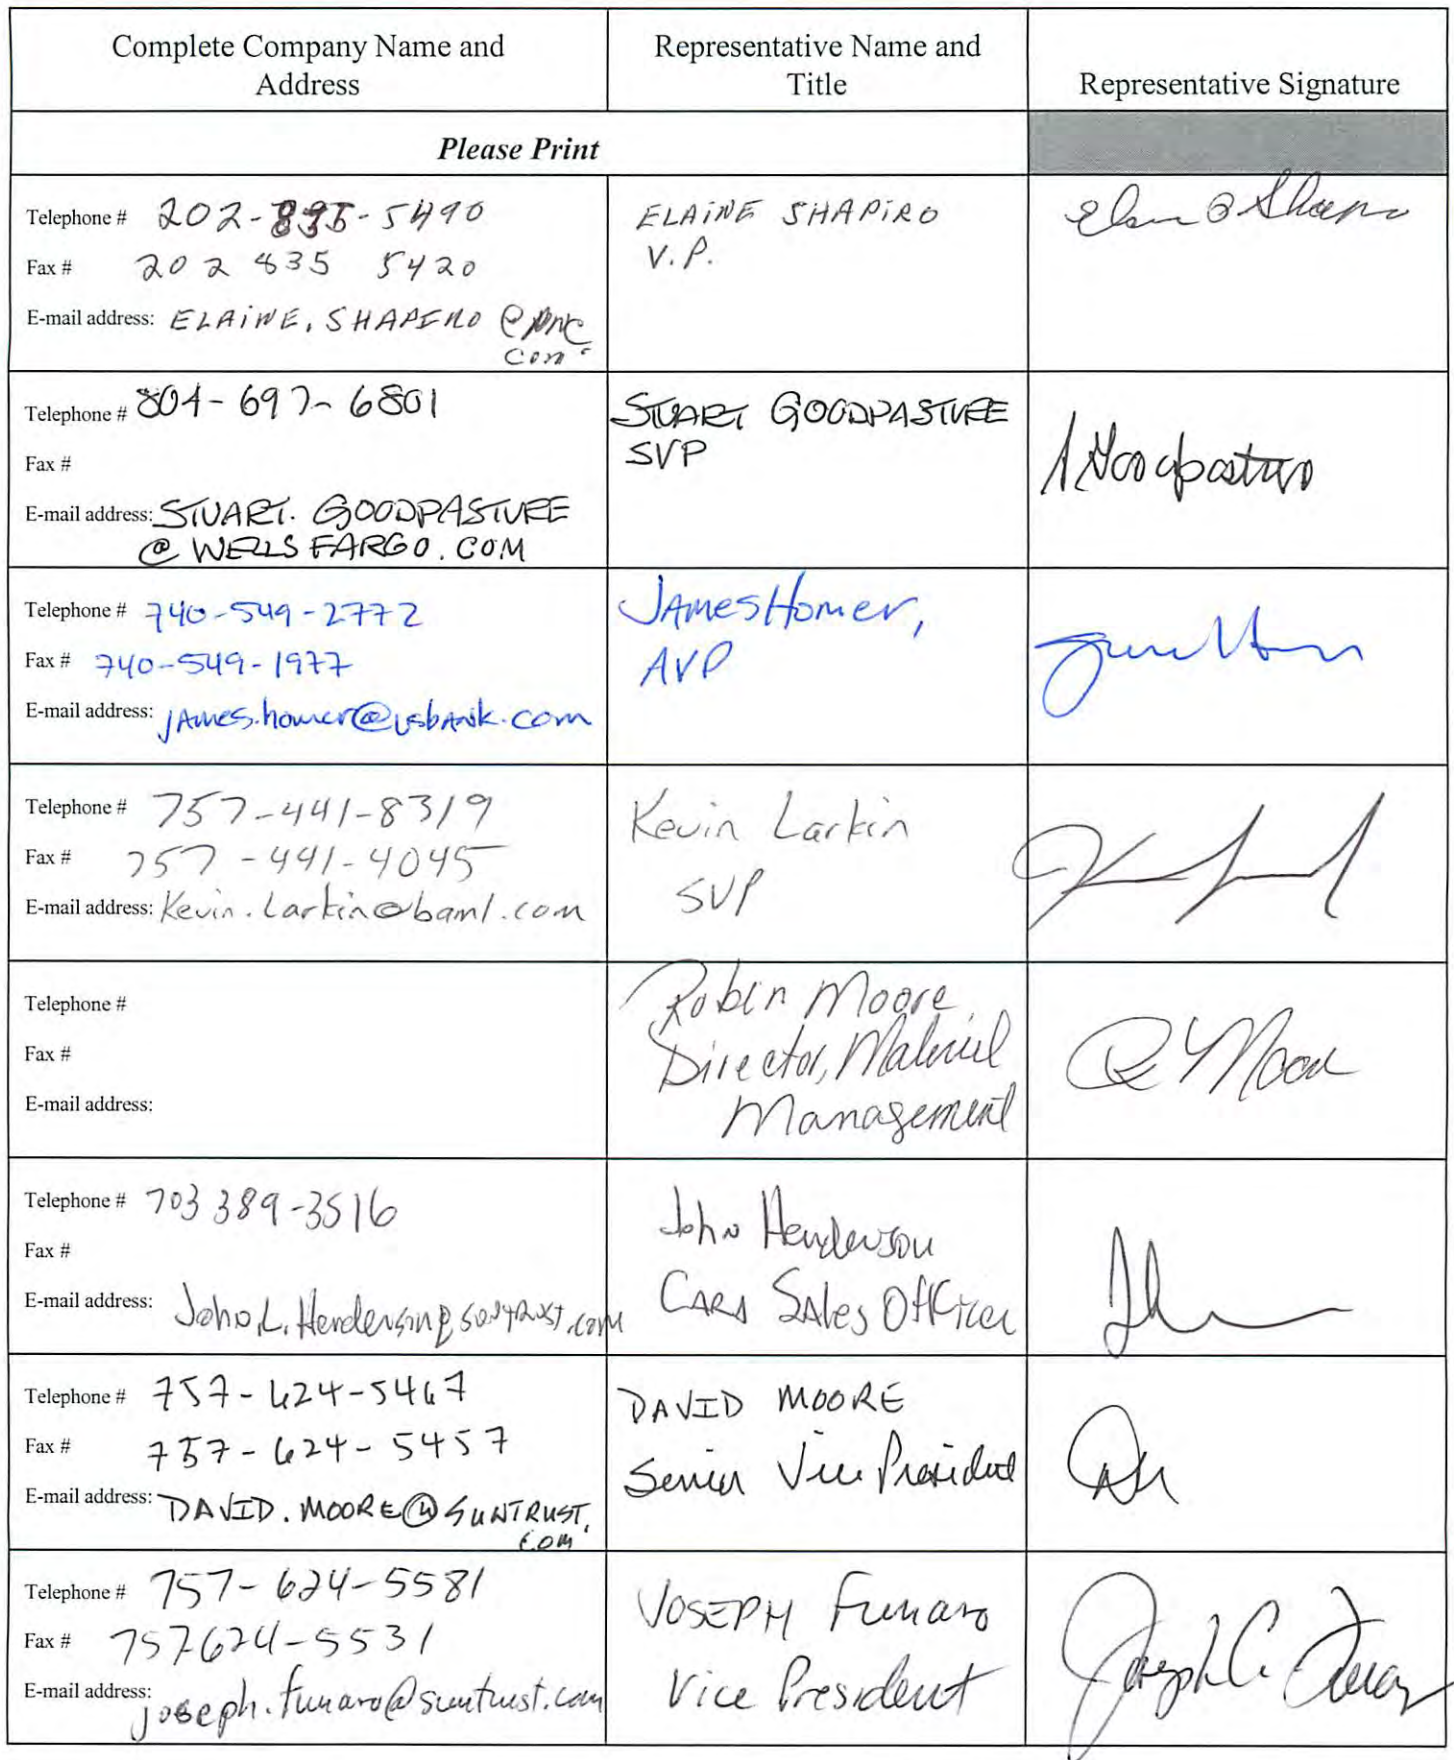 Complete Company Name and
Address
Representative Name and
Title
Representative Signature
Please Print
Telephone # 202-835-5490
Fax # 202 835 5420
E-mail address: ELAINE.SHAPIRO @pnc
com
ELAINE SHAPIRO
V.P.
Telephone # 804-697-6801
Fax #
E-mail address: STUART.GOODPASTURE
@WELLSFARGO.COM
STUART GOODPASTURE
SVP
Telephone # 740-549-2772
Fax # 740-549-1977
E-mail address: james.homer@usbank.com
JAMES Homer,
AVP
Telephone # 757-441-8319
Fax # 757-441-4045
E-mail address: Kevin.Larkin@baml.com
Kevin Larkin
SVP
Telephone #
Fax #
E-mail address:
Robin Moore
Director, Materiel
Management
R Moore
Telephone # 703 389-3516
Fax #
E-mail address: John.L.Henderson@suntrust.com
John Henderson
CARD SALES Officer
Telephone # 757-624-5467
Fax # 757-624-5457
E-mail address: DAVID.MOORE@SUNTRUST.
COM
DAVID MOORE
Senior Vice President
Telephone # 757-624-5581
Fax # 757624-5531
E-mail address: joseph.funaro@suntrust.com
JOSEPH Funaro
Vice President
Joseph C. Funaro